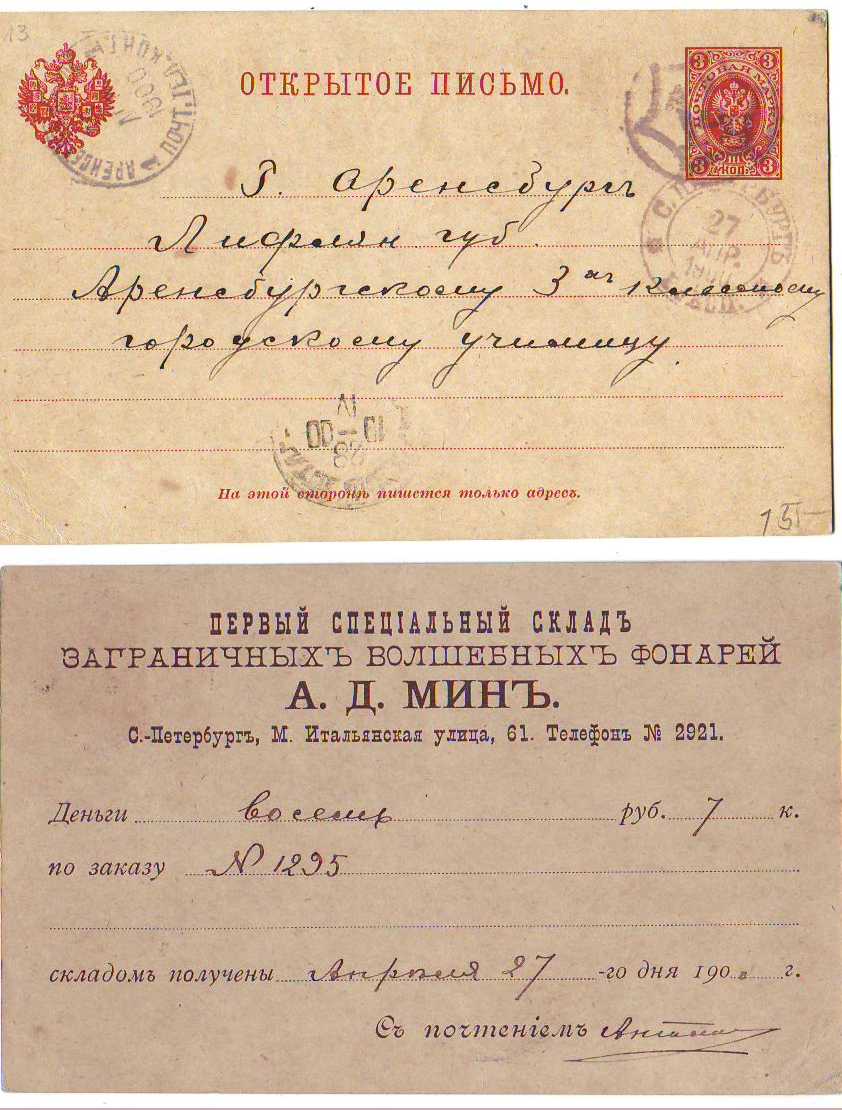 13
ОТКРЫТОЕ ПИСЬМО.
3 3
ПОЧТОВАЯ МАРКА
3 КОП. 3
АРЕНСБ
1900
С. ПЕТЕРБУРГЪ
27
АПР.
1900
Г. Аренсбургъ
Лифлян губ.
Аренсбургскому 3хъ классному
городскому училищу
IV
19 00
28
На этой сторонѣ пишется только адресъ.
15-
ПЕРВЫЙ СПЕЦІАЛЬНЫЙ СКЛАДЪ
ЗАГРАНИЧНЫХЪ ВОЛШЕБНЫХЪ ФОНАРЕЙ
А. Д. МИНЪ.
С.-Петербургъ, М. Итальянская улица, 61. Телефонъ № 2921.
Деньги восемь руб. 7 к.
по заказу № 1295
складомъ получены Апрѣля 27 -го дня 1900 г.
Съ почтеніемъ